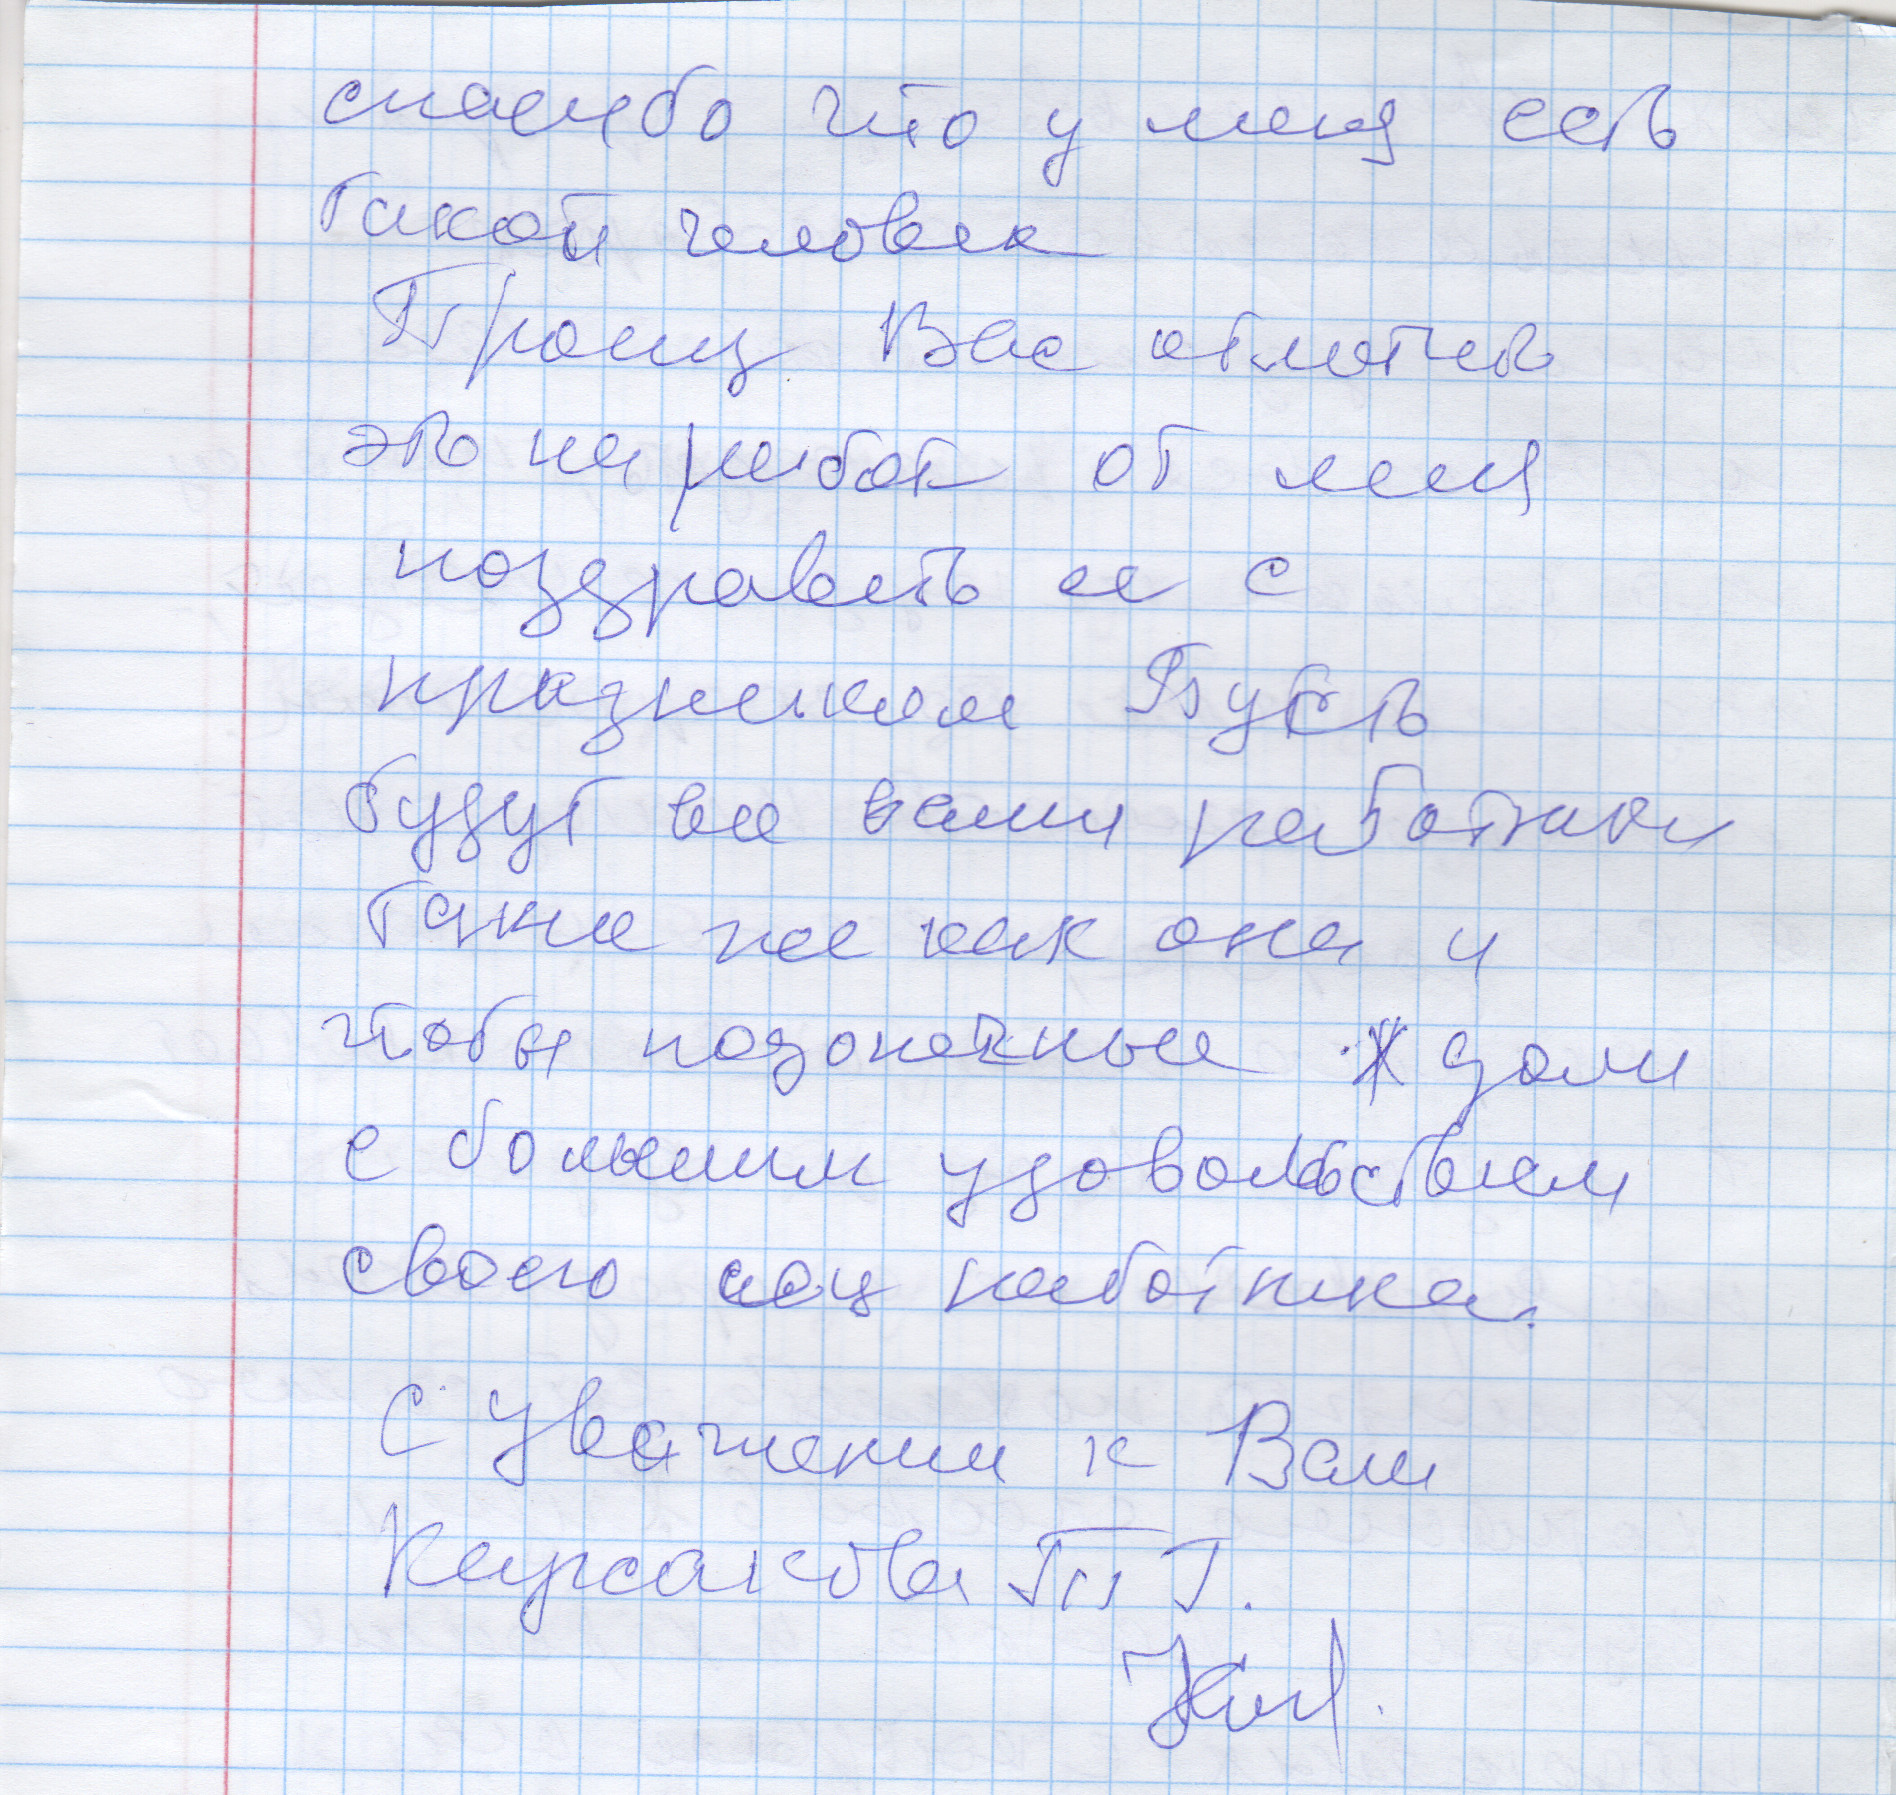 спасибо что у меня есть
такой человек
Прошу Вас отметить
это на работ от меня
поздравить ее с
праздником Пусть
будут все ваши работники
такие же как она и
чтобы подопечные ждали
с большим удовольствием
своего соц работника.
С уважении к Вам